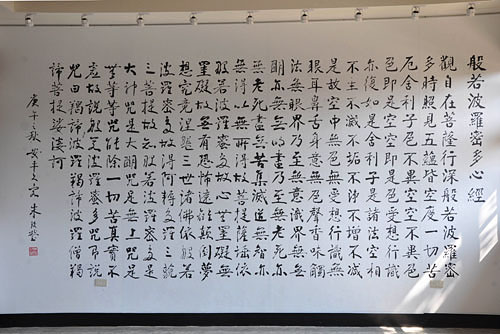 般若波羅密多心經
觀自在菩薩行深般若波羅密
多時照見五蘊皆空度一切苦
厄舍利子色不異空空不異色
色即是空空即是色受想行識
亦復如是舍利子是諸法空相
不生不滅不垢不淨不增不減
是故空中無色無受想行識無
眼耳鼻舌身意無色聲香味觸
法無眼界乃至無意識界無無
明亦無無明盡乃至無老死亦
無老死盡無苦集滅道無智亦
無得以無所得故菩提薩埵依
般若波羅密多故心無罣礙無
罣礙故無有恐怖遠離顛倒夢
想究竟涅槃三世諸佛依般若
波羅密多故得阿耨多羅三藐
三菩提故知般若波羅密多是
大神咒是大明咒是無上咒是
無等等咒能除一切苦真實不
虛故說般若波羅密多咒即說
咒曰羯諦羯諦波羅羯諦波羅僧羯
諦菩提娑婆訶